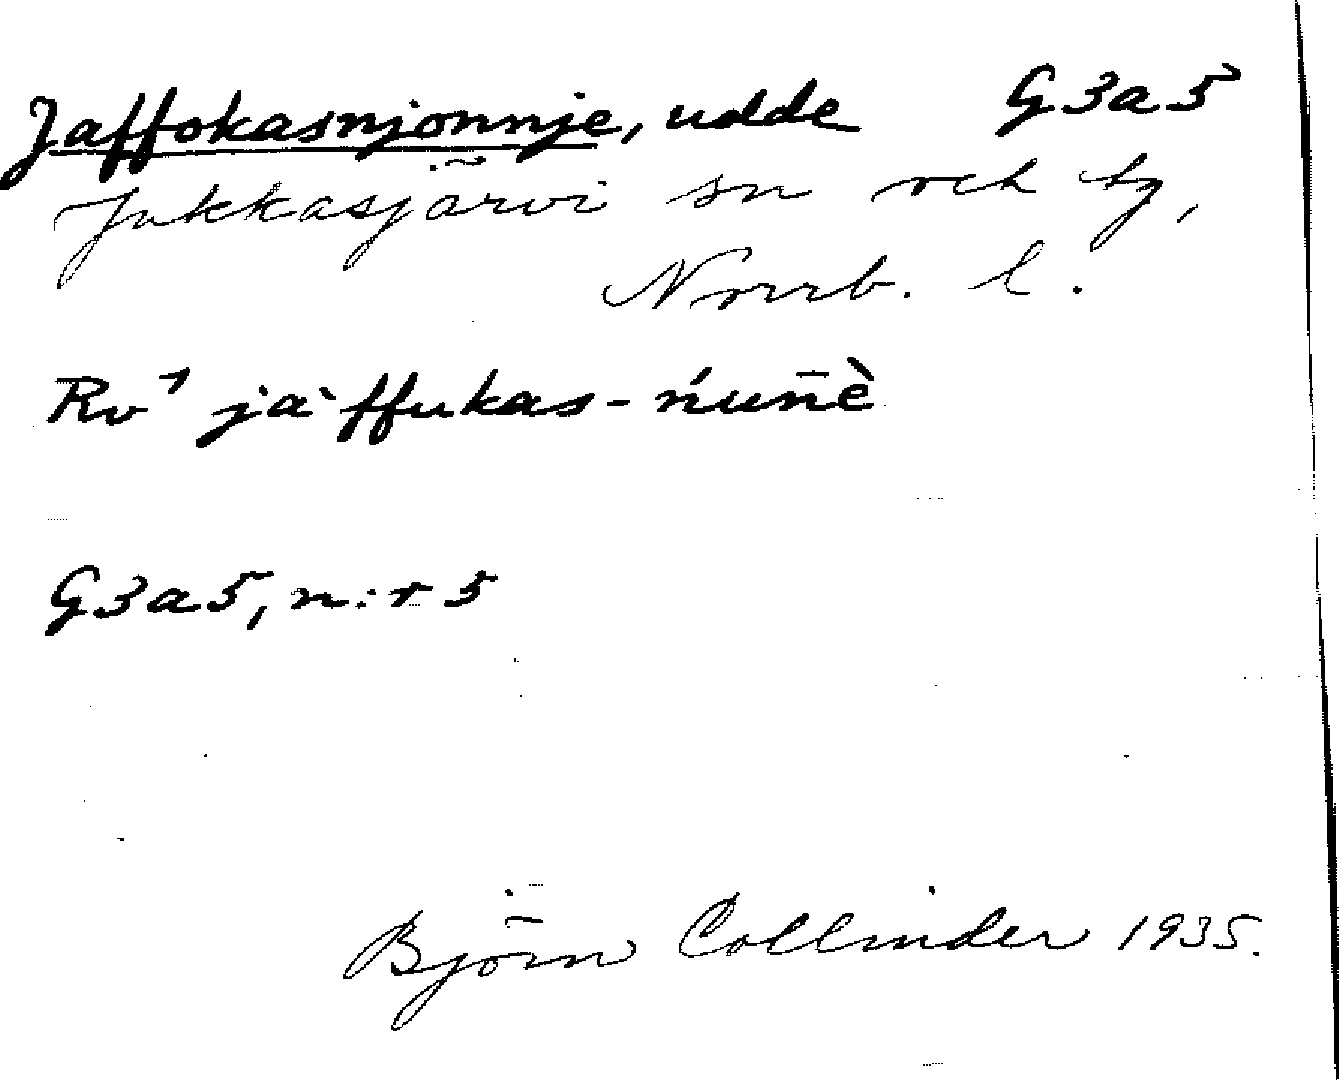 Jaffokasnjonnje, udde G3a5
Jukkasjärvi sn och by,
Norrb. l.
Rv⁷ jàffukas-ńun̄è
G3a5, n:r 5
Björn Collinder 1935.